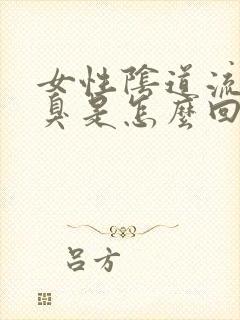 女性陰道流
臭是怎麼回
吕方